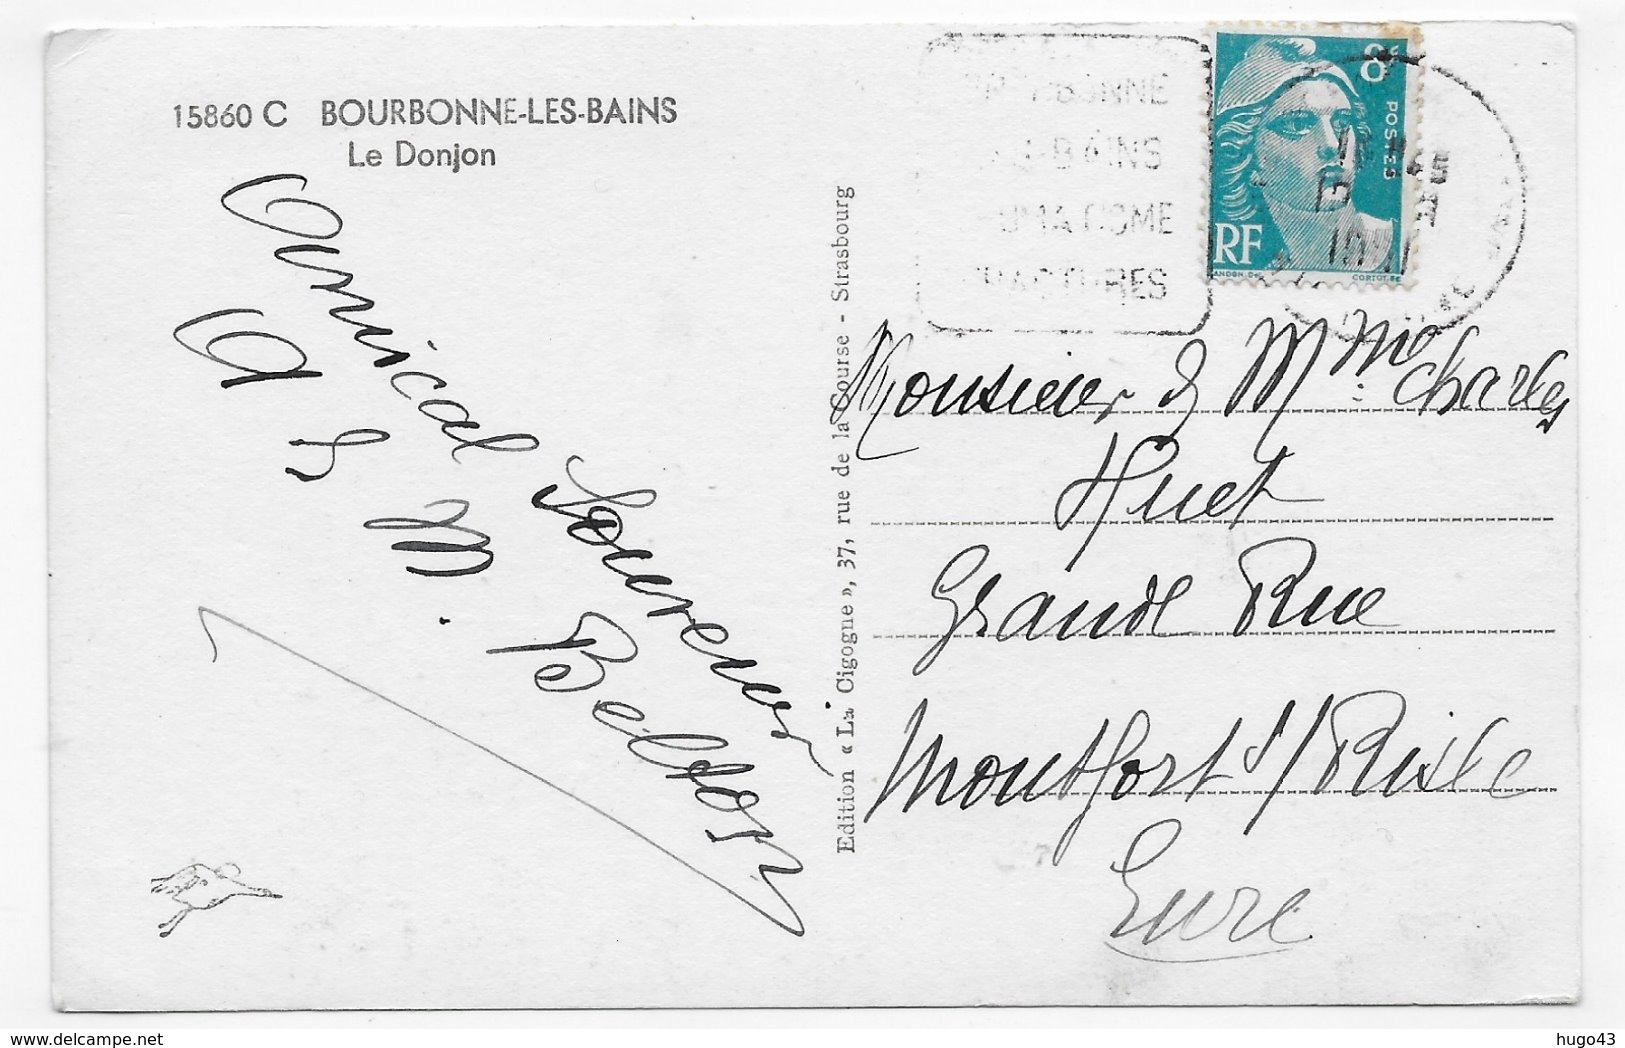 15860 C BOURBONNE-LES-BAINS
Le Donjon
Amical Souvenir
M. Bellon
Edition « La Cigogne », 37, rue de la Course - Strasbourg
BONNE
BAINS
RES
8F
POSTES
RF
CORTOT
Monsieur & Mme Charles
Huet
Grande Rue
Montfort s/ Risle
Eure
delcampe.net
hugo43